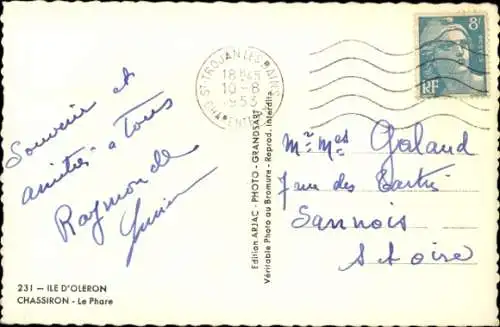 Souvenir et
amitiés à Tous
Raymonde
Lucien
231 - ILE D'OLERON
CHASSIRON - Le Phare
Edition ARJAC - PHOTO - GRANDSART
Véritable Photo au Bromure - Reprod. interdite
ST-TROJAN LES BAINS
18H45
10-8
1953
CHTE
8F
RF
Mr Mes Galand
7 rue des
Sannois
S et oire